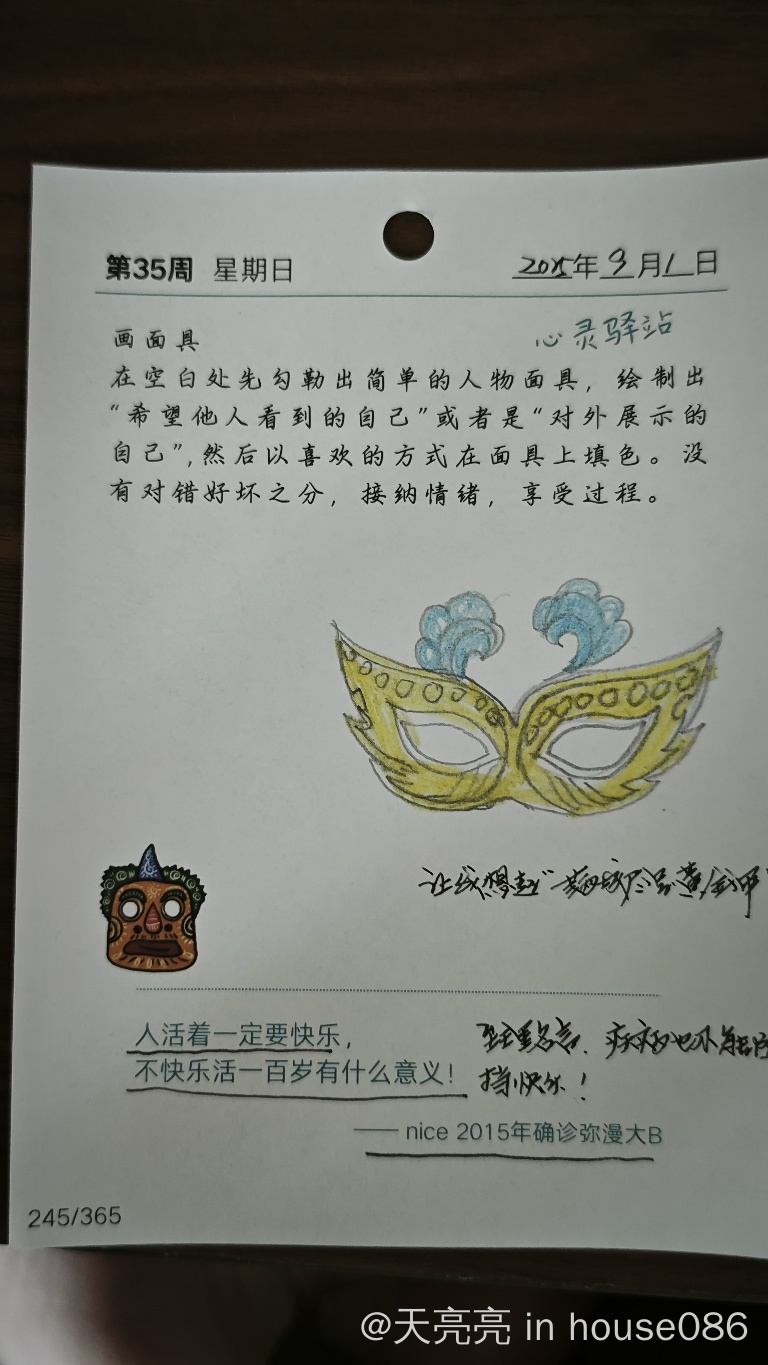 第35周 星期日 2025年9月1日
心灵驿站
画面具
在空白处先勾勒出简单的人物面具，绘制出
“希望他人看到的自己”或者是“对外展示的
自己”,然后以喜欢的方式在面具上填色。没
有对错好坏之分，接纳情绪，享受过程。
让我想起“满城尽是黄金甲”
人活着一定要快乐，
不快乐活一百岁有什么意义！
疾病也不能
持快乐！
—— nice 2015年确诊弥漫大B
245/365
@天亮亮 in house086